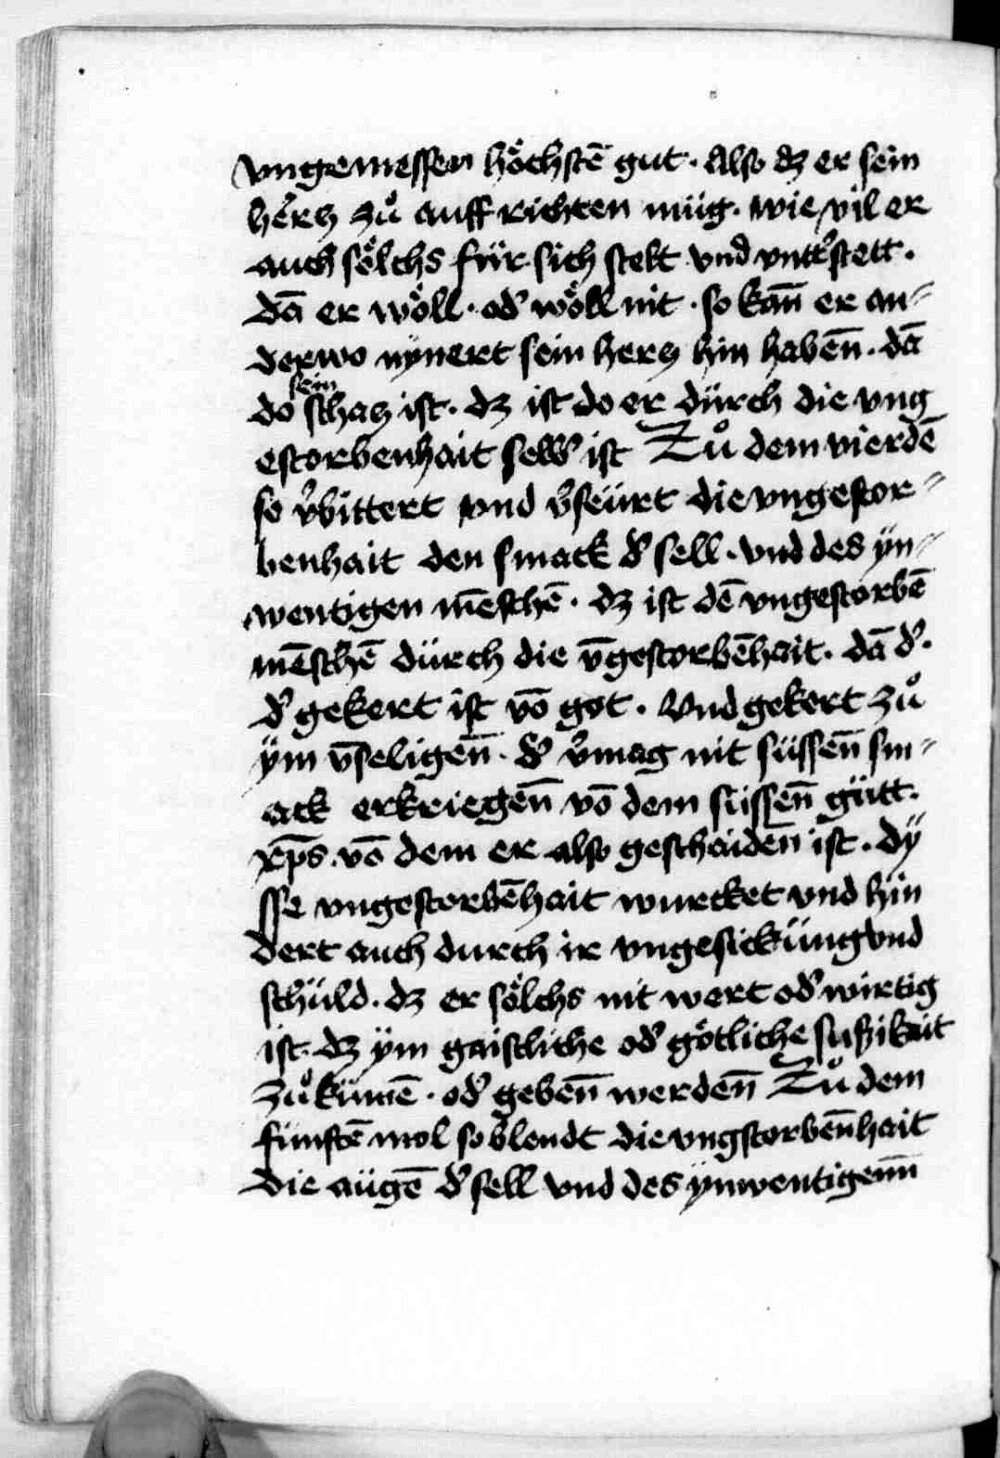 vngemessen hoͤchstē gut. Also dz er sein
hercz zuͦ auffrichten müg. wie vil er
auch soͤlchs für sich stelt vnd vntˀstett.
dā er woͤll. odˀ woͤll nit. so kan̄ er an=
derwo nynert sein hercz hin haben̄. dā
do sein schacz ist. dz ist do er dürch die vng
estorbenhait selbˀ ist Zuͦ dem vierdē
so vˀbittert vnd vˀseürt die vngestor=
benhait den smack dˀ sell. vnd des ÿn=
wentigen mēschē. dz ist dē vngestorbē
mēschē dürch die v̄gestorbēhait. dā dˀ.
dˀ gekert ist vō got. Vnd gekert zuͦ
ÿm v̄seligen̄. dˀ vˀmag nit süssen̄ sm=
ack erkriegen̄ vō dem süssen̄ gütt.
xp̄s. vō dem er also geschaiden̄ ist. dÿ
sse vngestorbēhait wurcket vnd hin
dert auch durch ir vngesickünng vnd
schüld. dz er soͤlchs nit wert odˀ wirtig
ist. dz ÿm gaistliche odˀ goͤtliche sußikait
zuͦkümē. odˀ geben̄ werden̄ Zuͦ dem
fünftē mol so vˀblendt die vngstorben̄hait
die augē dˀ sell vnd des ynwentigenn̄